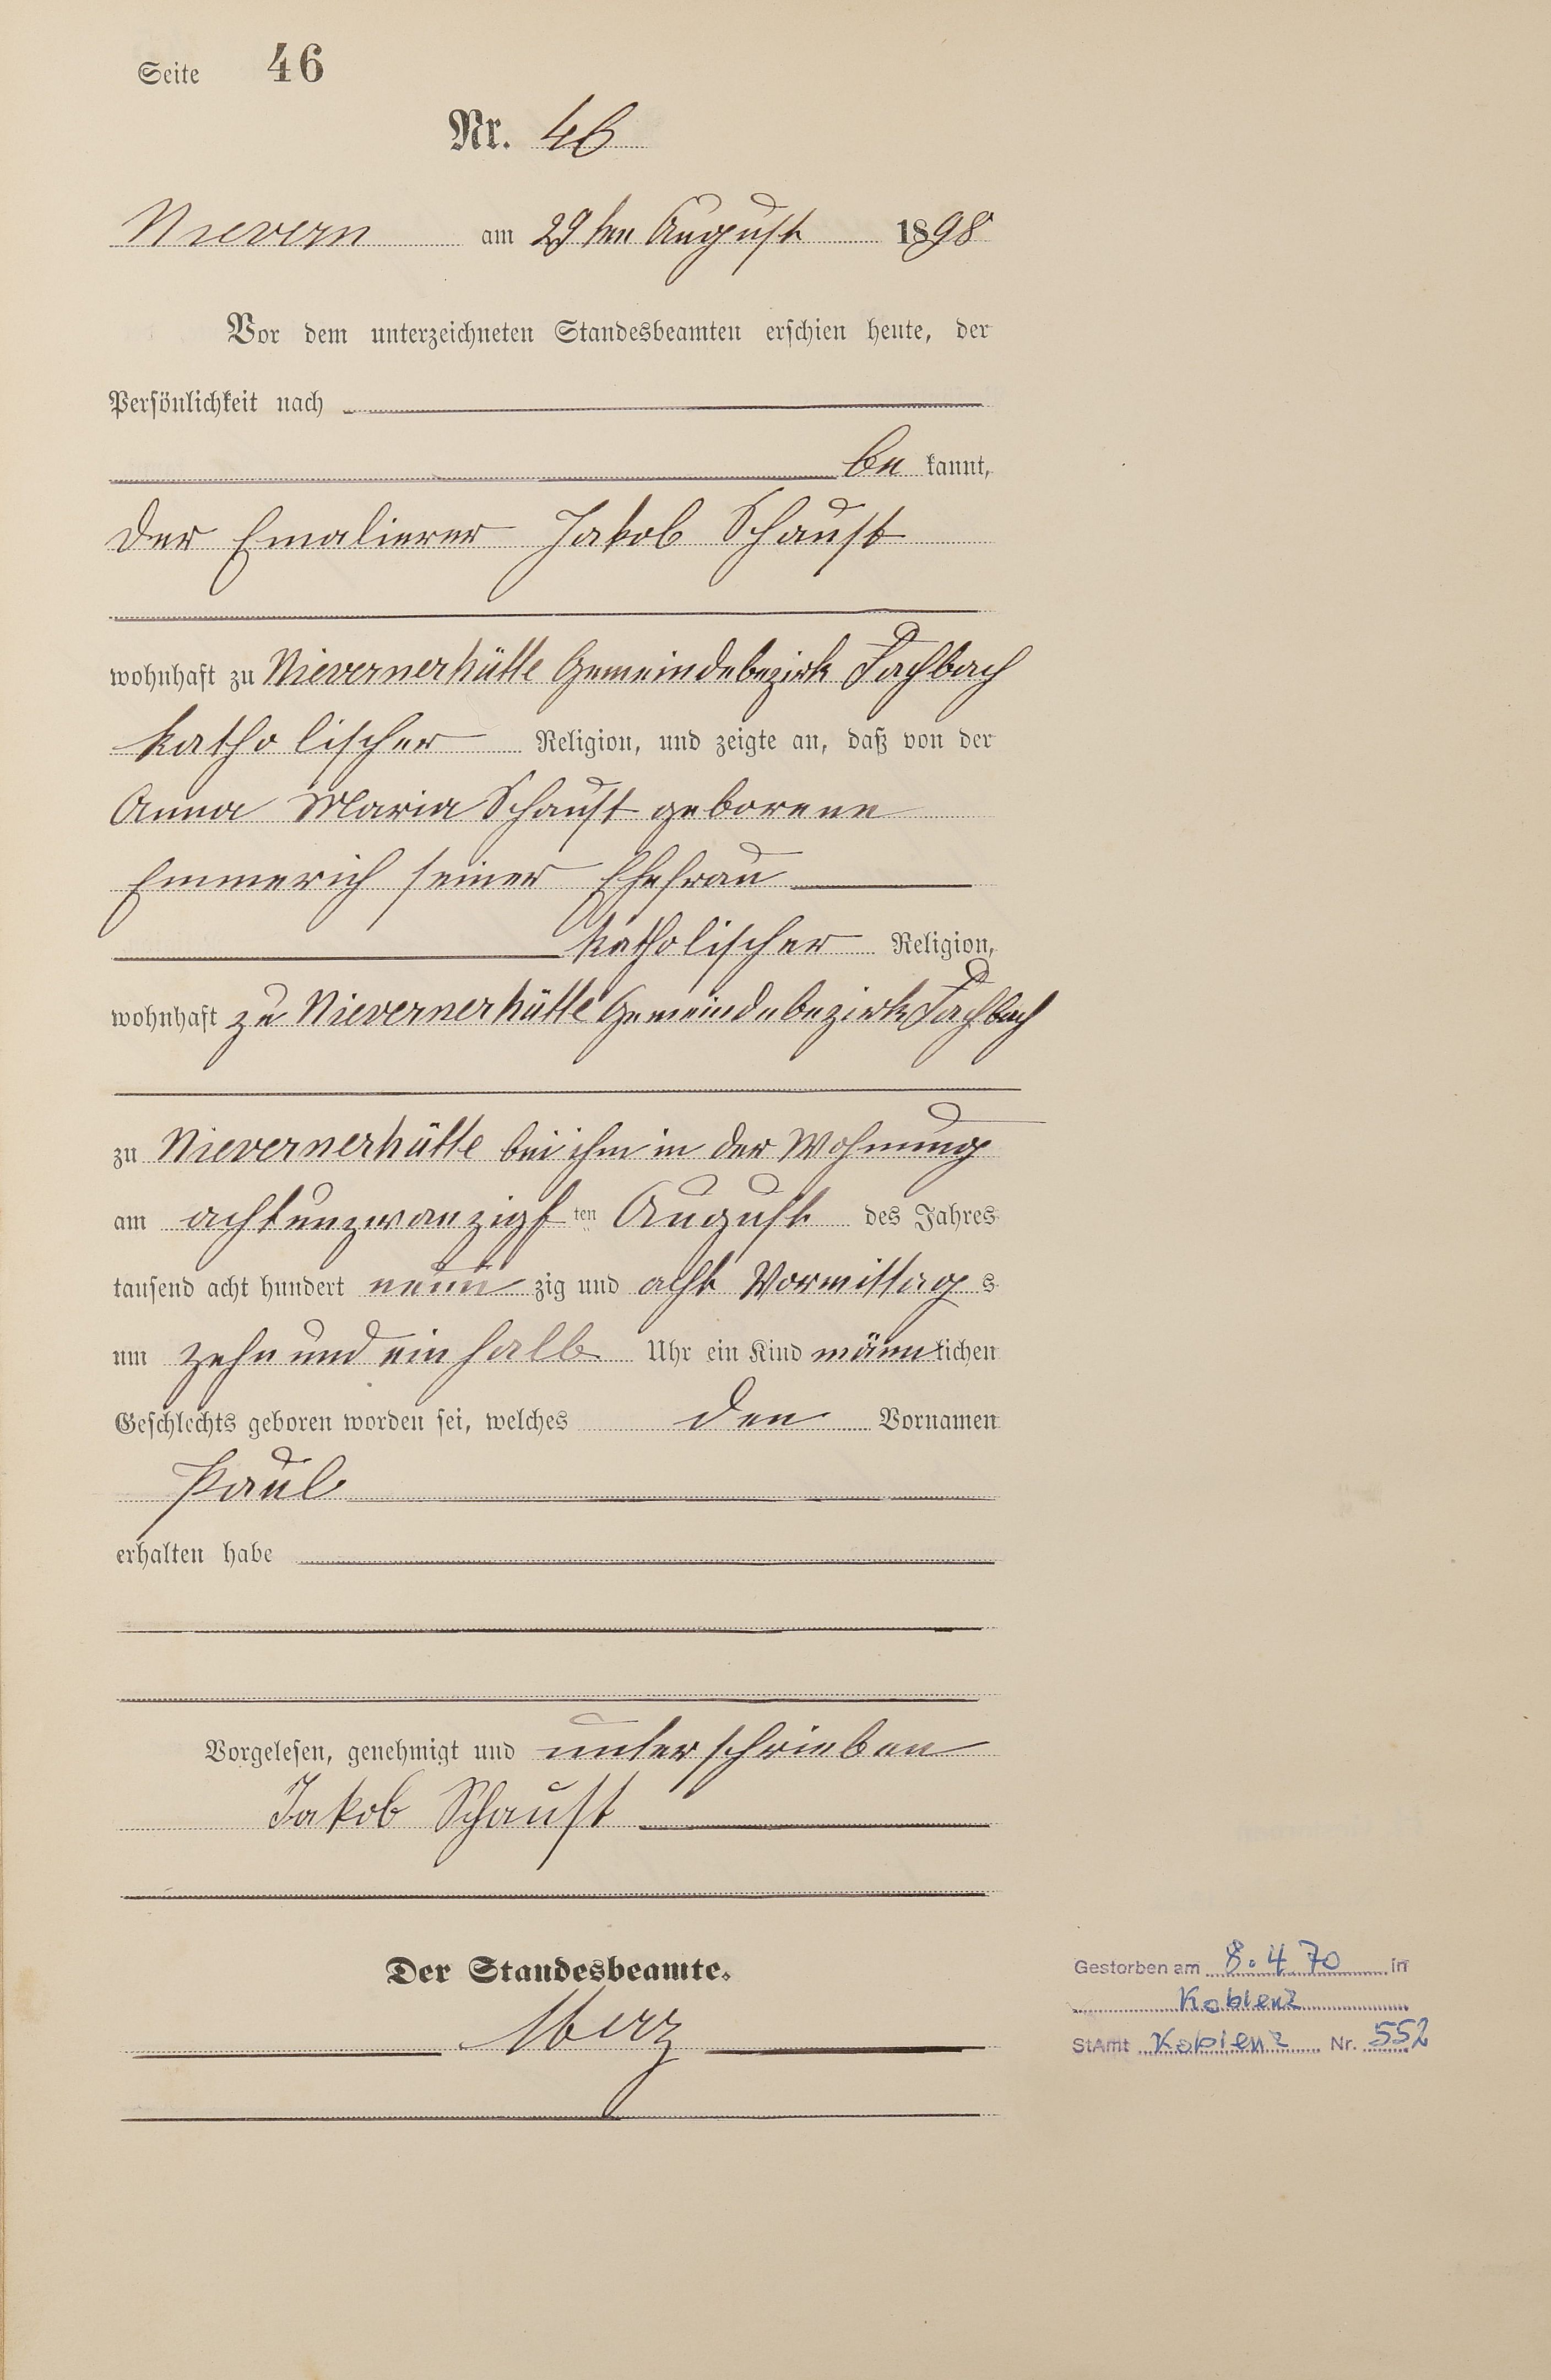 Seite 46
Nr. 46
Nievern am 29ten August 1898
Vor dem unterzeichneten Standesbeamten erschien heute, der
Persönlichkeit nach
be kannt,
der Emalierer Jakob Schaust
wohnhaft zu Nievernerhütte Gemeindebezirk Fachbach
katholischer Religion, und zeigte an, daß von der
Anna Maria Schaust geborene
Emmerich seiner Ehefrau
katholischer Religion,
wohnhaft zu Nievernerhütte Gemeindebezirk Fachbach
zu Nievernerhütte bei ihm in der Wohnung
am achtunzwanzigsten August des Jahres
tausend acht hundert neun zig und acht Vormittags
um zehn und ein halb Uhr ein Kind männlichen
Geschlechts geboren worden sei, welches den Vornamen
Paul
erhalten habe
Vorgelesen, genehmigt und unterschrieben
Jakob Schaust
Der Standesbeamte.
Merz
Gestorben am 8.4.70 in
Koblenz
StAmt Koblenz Nr. 552